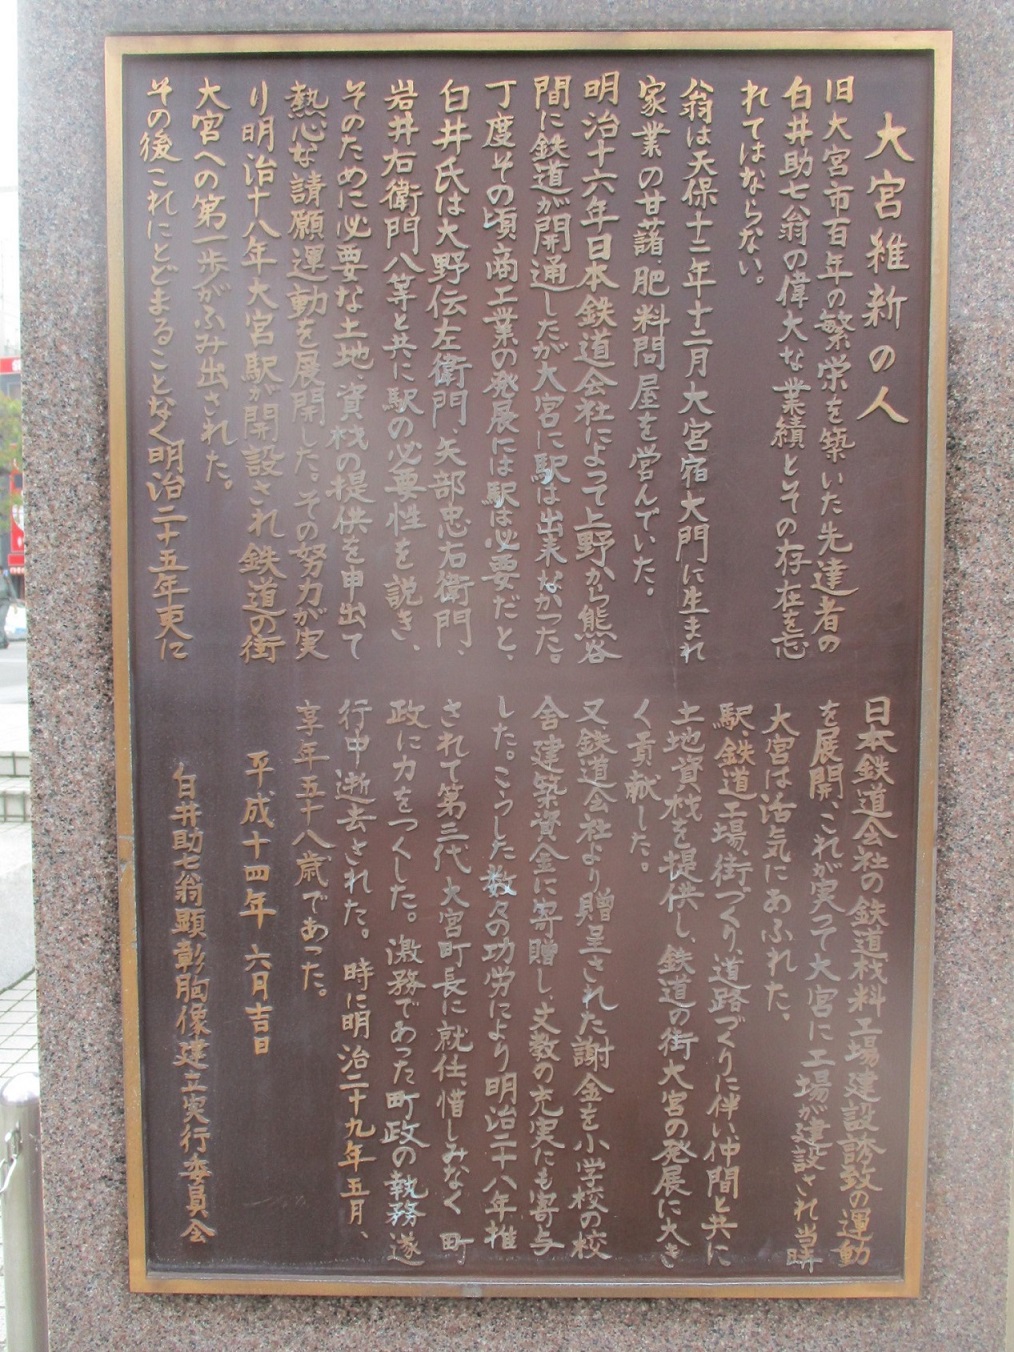 大宮維新の人
旧大宮市百年の繁栄を築いた先達者の
白井助七翁の偉大な業績とその存在を忘
れてはならない。
翁は天保十二年十二月大宮宿大門に生まれ
家業の甘藷肥料問屋を営んでいた。
明治十六年日本鉄道会社によって上野から熊谷
間に鉄道が開通したが大宮に駅は出来なかった。
丁度その頃商工業の発展には駅は必要だと、
白井氏は大野伝左衛門、矢部忠右衛門、
岩井右衛門八等と共に駅の必要性を説き、
そのために必要な土地、資材の提供を申出て
熱心な請願運動を展開した。その努力が実
り明治十八年大宮駅が開設され鉄道の街
大宮への第一歩がふみ出された。
その後これにとどまることなく明治二十五年更に
日本鉄道会社の鉄道材料工場建設誘致の運動
を展開、これが実って大宮に工場が建設され当時
大宮は活気にあふれた。
駅、鉄道工場街づくり、道路づくりに伴い仲間と共に
土地資材を提供し、鉄道の街大宮の発展に大き
く貢献した。
又鉄道会社より贈呈された謝金を小学校の校
舎建築資金に寄贈し、文教の充実にも寄与
した。こうした数々の功労により明治二十八年推
されて第三代大宮町長に就任、惜しみなく町
政に力をつくした。激務であった町政の執務遂
行中逝去された。時に明治二十九年五月、
享年五十八歳であった。
平成十四年 六月吉日
白井助七翁顕彰胸像建立実行委員会